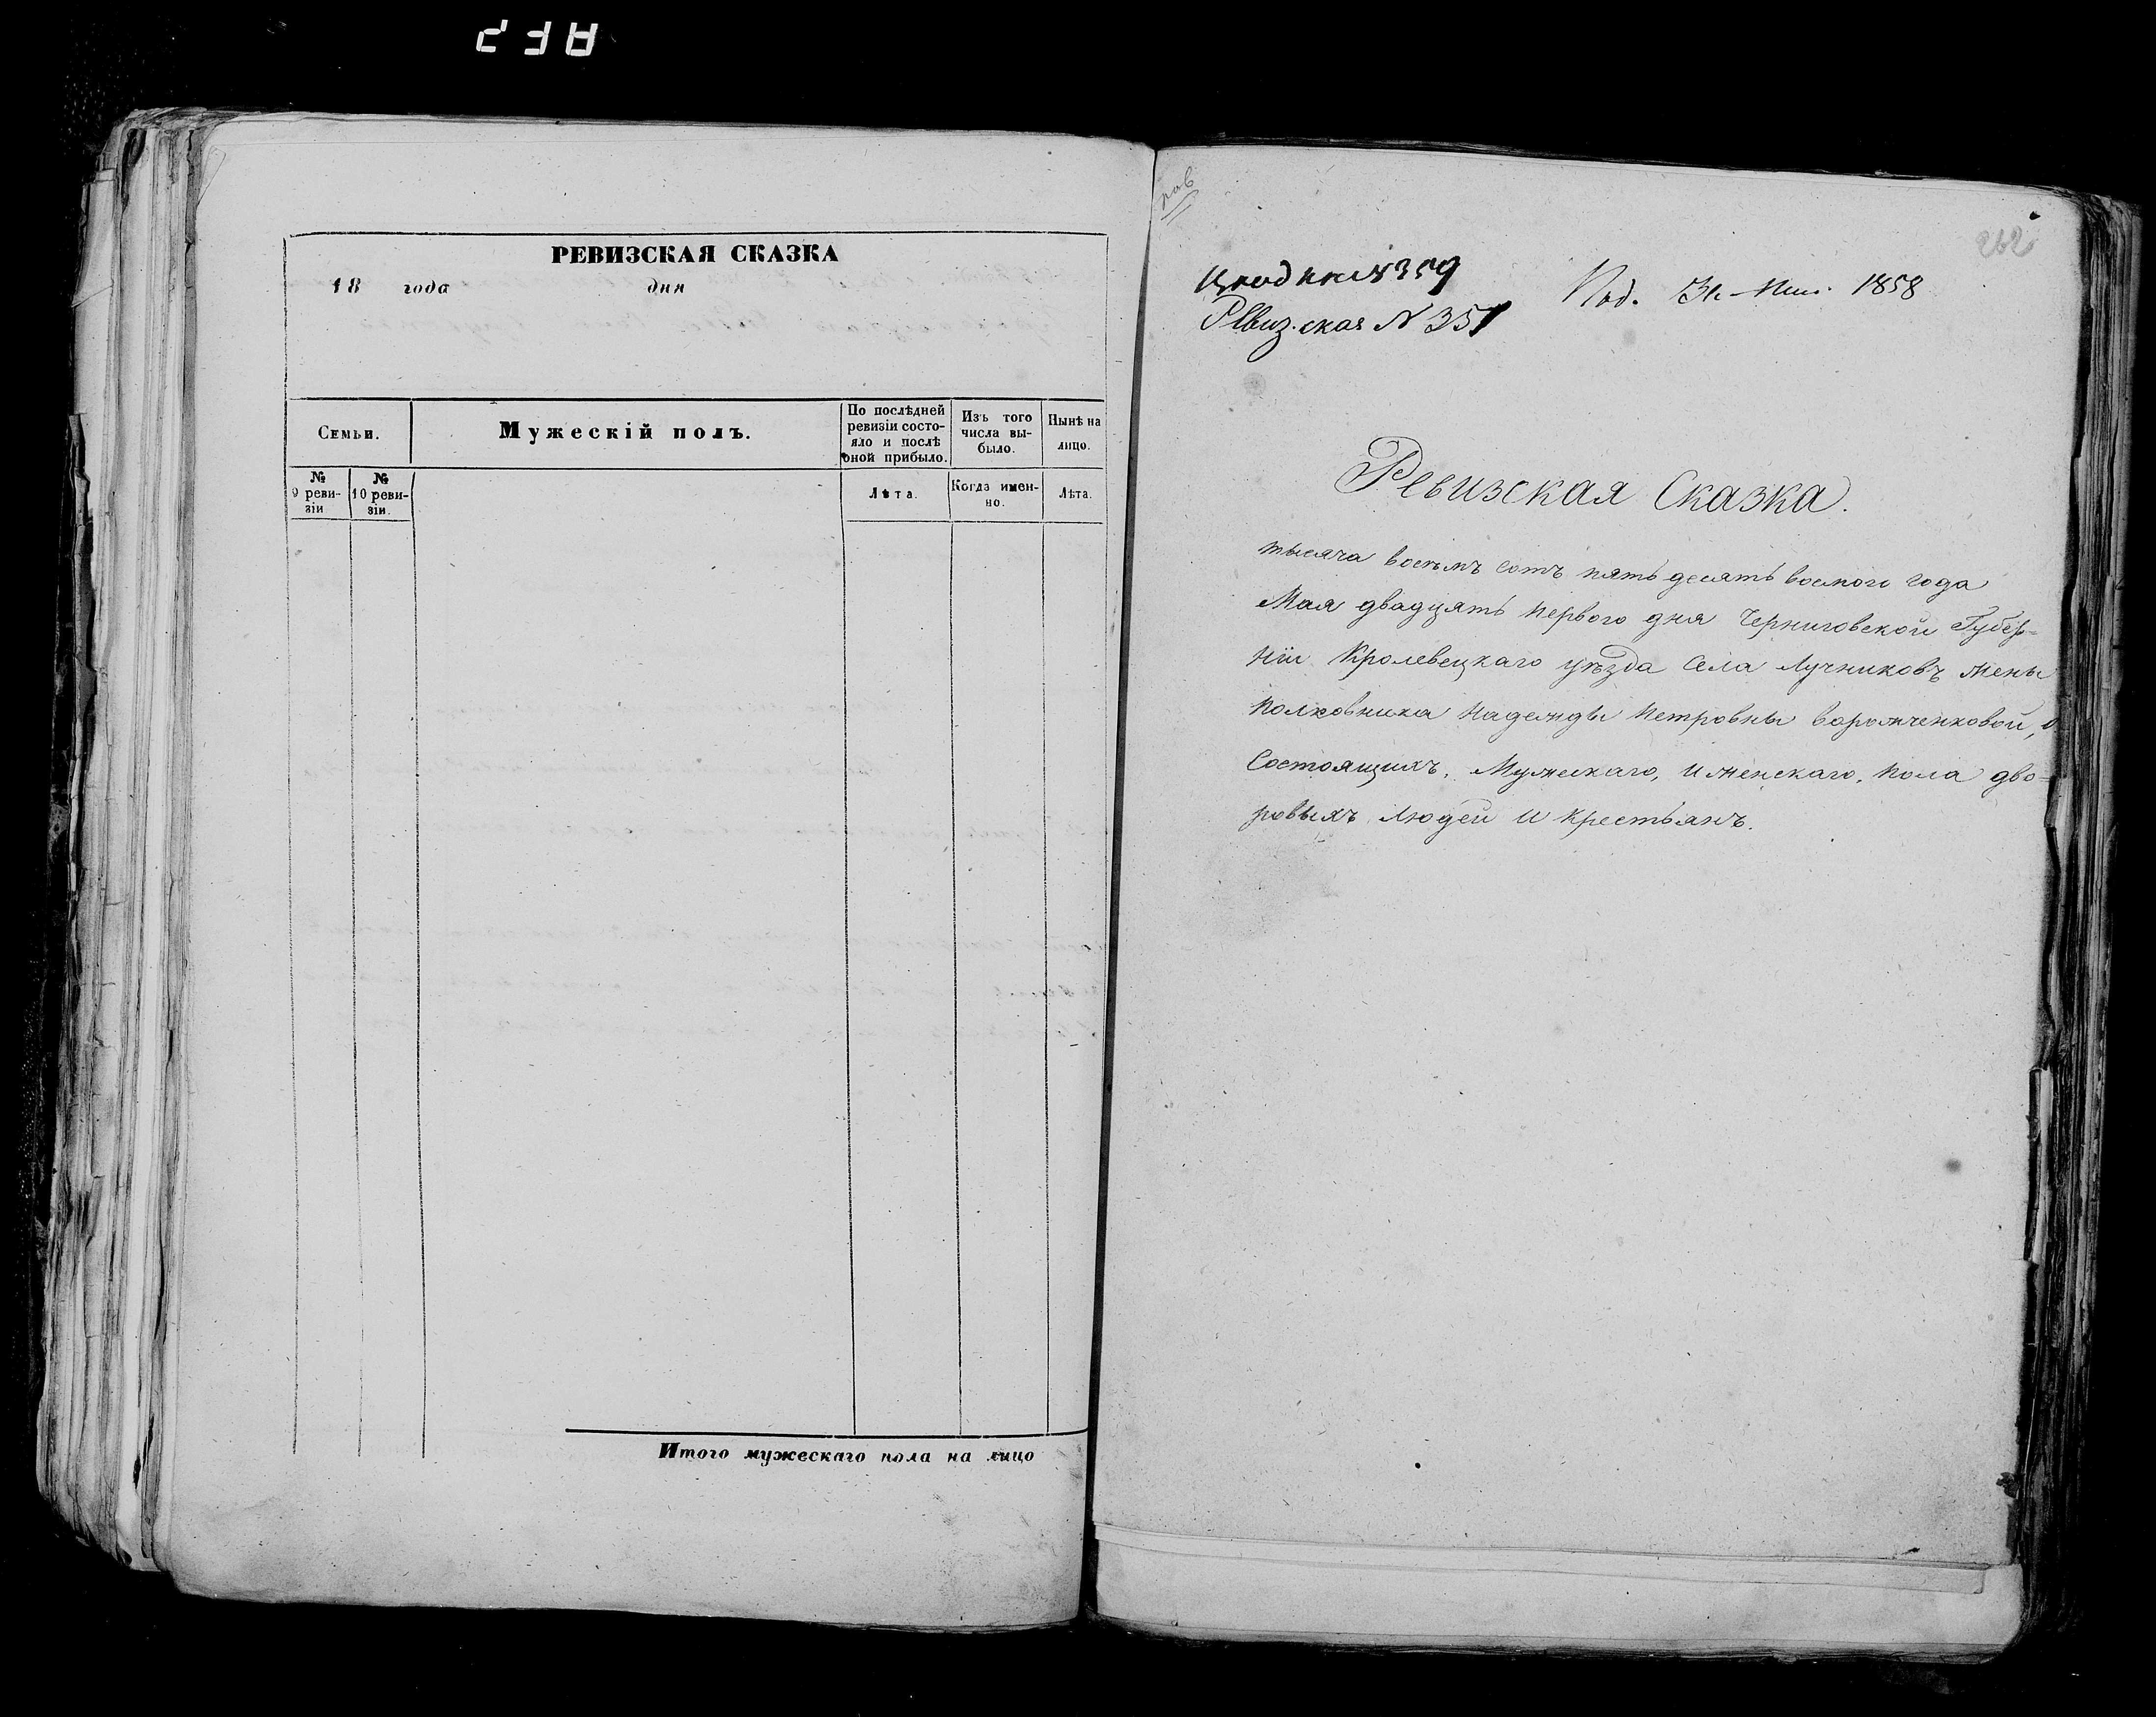 РЕВИЗСКАЯ СКАЗКА
18 года дня
Семьи.
Мужескій полъ.
По послѣдней ревизіи состояло и послѣ оной прибыло.
Изъ того числа выбыло.
Нынѣ на лицо.
№ 9 ревизіи
№ 10 ревизіи.
Лѣта.
Когда именно.
Лѣта.
Итого мужескаго пола на лицо
262
Ревизская N 351
1858
Ревизская Сказка.
тысяча восемъ сотъ пятьдесятъ восмого года
Мая двадцять первого дня Черниговской Губер=
ніи Кролевецкаго уѣзда Села Лучниковъ жены
полковника Надежды Петровны
Состоящихъ, Мужескаго, и женскаго, пола дво=
ровыхъ людей и крестьянъ.